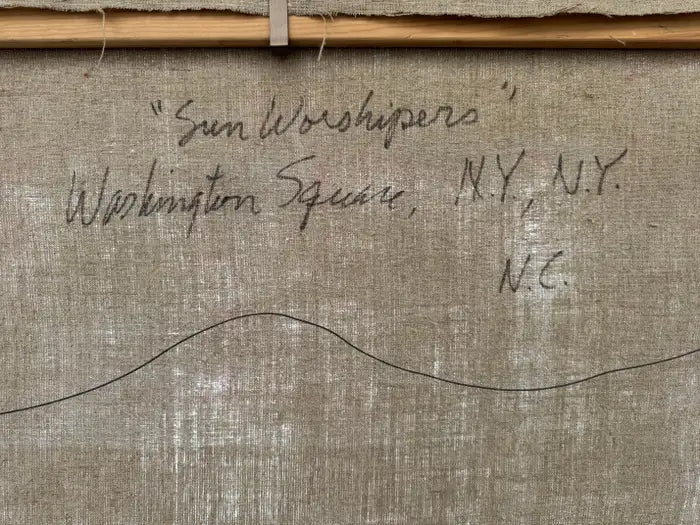 "Sun Worshipers"
Washington Square, N.Y., N.Y.
N.C.